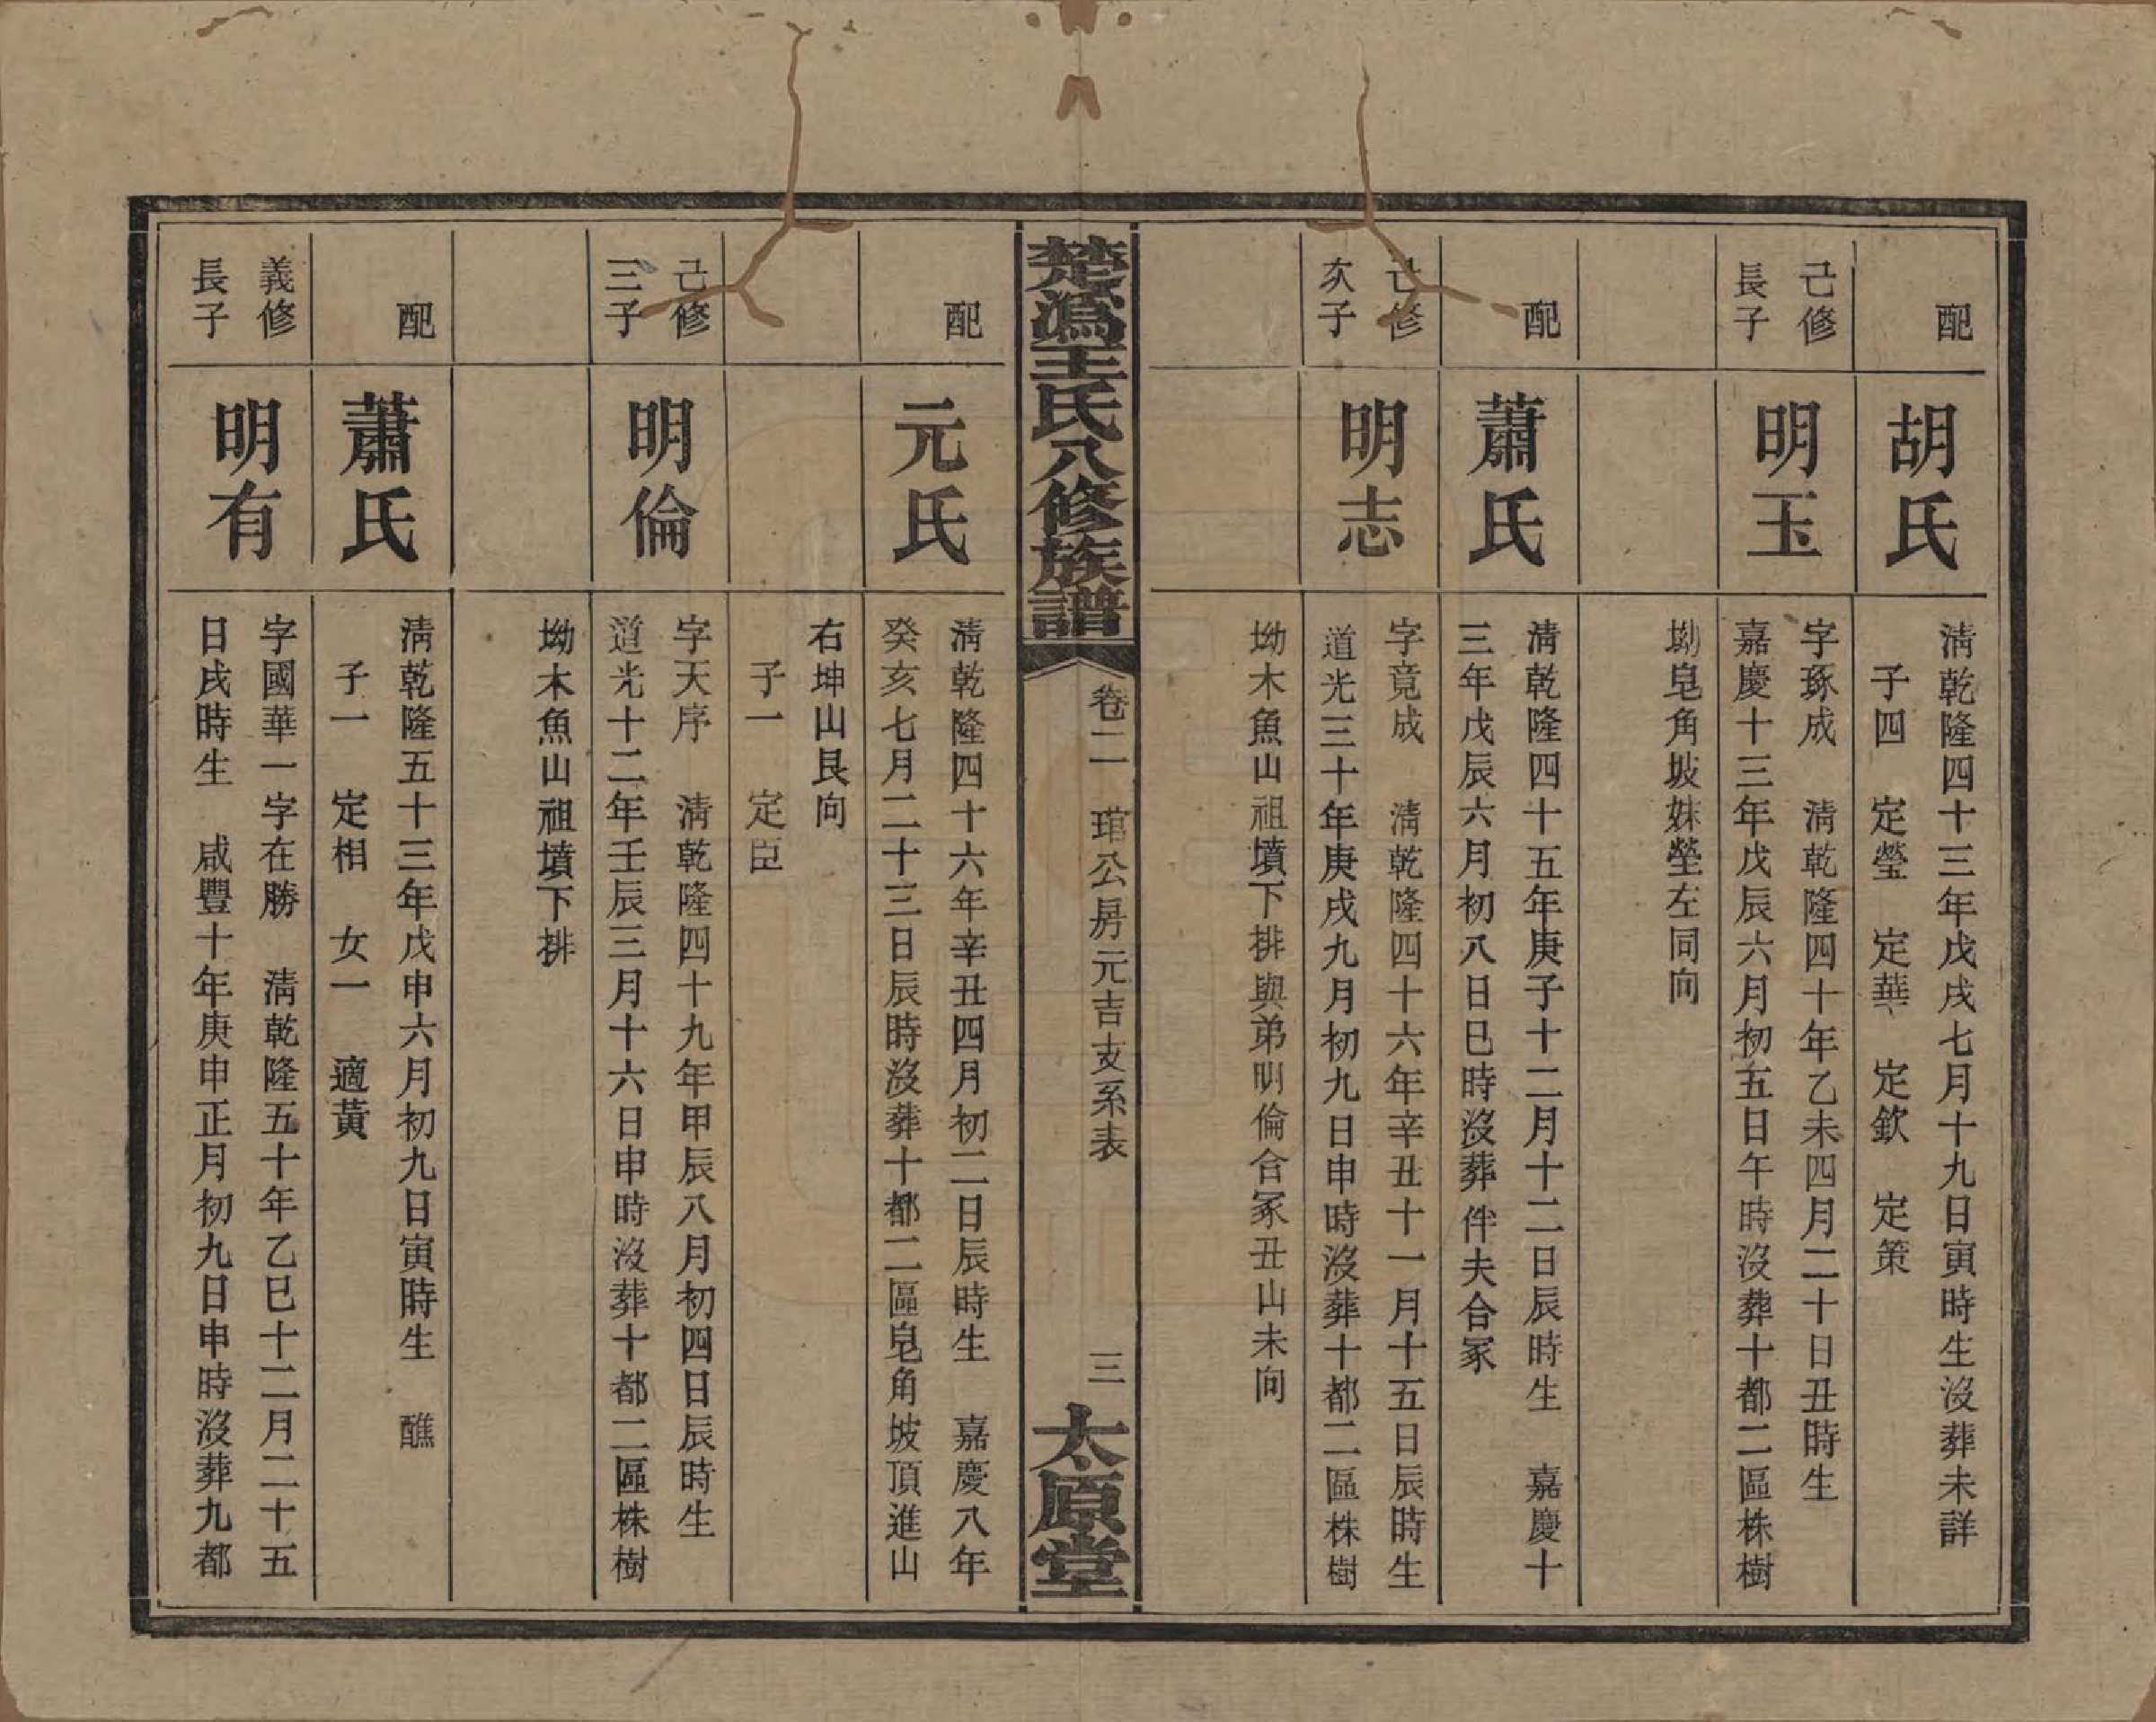 配
胡氏
淸乾隆四十三年戊戌七月十九日寅時生沒葬未詳
子四　定瑩　定華　定欽　定策
己修
長子
明玉
字琢成　淸乾隆四十年乙未四月二十日丑時生
嘉慶十三年戊辰六月初五日午時沒葬十都二區株樹
坳皂角坡妹塋左同向
配
蕭氏
淸乾隆四十五年庚子十二月十二日辰時生　嘉慶十
三年戊辰六月初八日巳時沒葬伴夫合冢
己修
次子
明志
字竟成　淸乾隆四十六年辛丑十一月十五日辰時生
道光三十年庚戌九月初九日申時沒葬十都二區株樹
坳木魚山祖墳下排與弟明倫合冢丑山未向
楚溈王氏八修族譜
卷二　琯公房元吉支系表
三
太原堂
配
元氏
淸乾隆四十六年辛丑四月初二日辰時生　嘉慶八年
癸亥七月二十三日辰時沒葬十都二區皂角坡頂進山
右坤山艮向
子一　定臣
己修
三子
明倫
字天序　淸乾隆四十九年甲辰八月初四日辰時生
道光十二年壬辰三月十六日申時沒葬十都二區株樹
坳木魚山祖墳下排
配
蕭氏
淸乾隆五十三年戊申六月初九日寅時生　醮
子一　定相　女一　適黃
義修
長子
明有
字國華一字在勝　淸乾隆五十年乙巳十二月二十五
日戌時生　咸豐十年庚申正月初九日申時沒葬九都